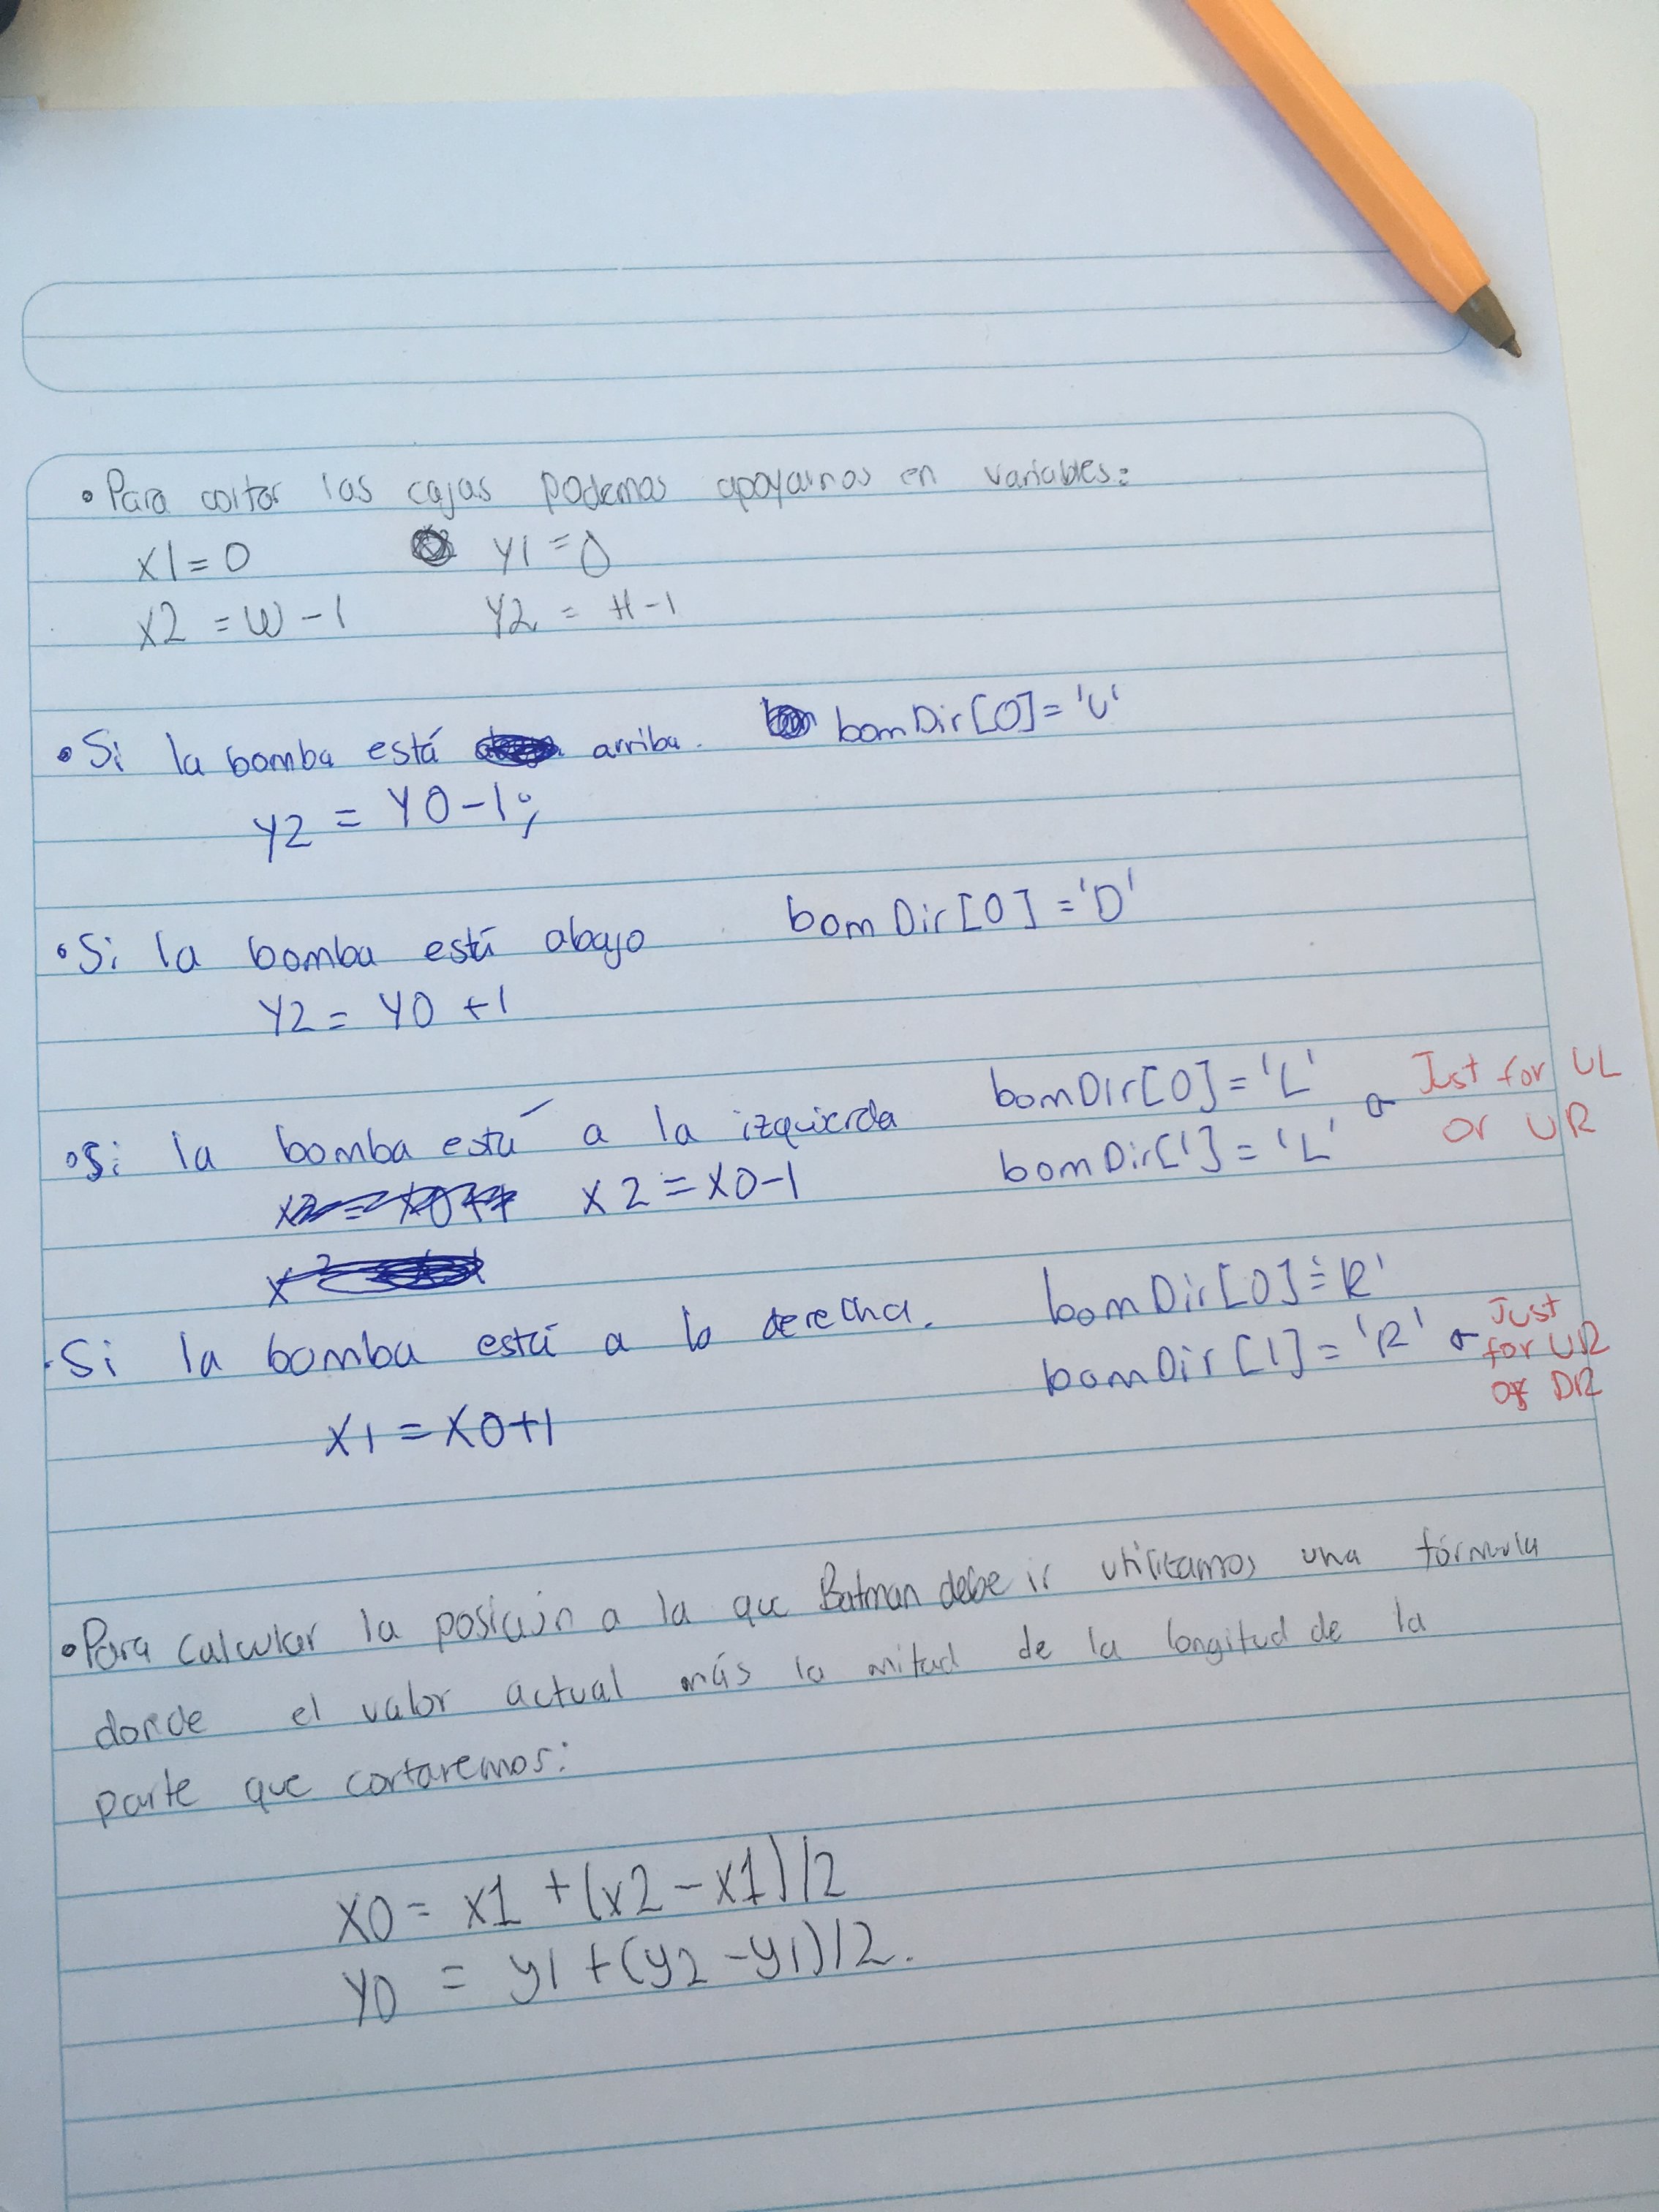 • Para cortar las cajas podemos apoyarnos en variables:
x1 = 0 y1 = 0
x2 = W - 1 y2 = H - 1
• Si la bomba está arriba. bomDir[0] = 'U'
y2 = y0 - 1;
• Si la bomba está abajo bomDir[0] = 'D'
y2 = y0 + 1
• Si la bomba está a la izquierda bomDir[0] = 'L'
x2 = x0 - 1 bomDir[1] = 'L' Just for UL
or UR
• Si la bomba está a la derecha. bomDir[0] = 'R'
x1 = x0 + 1 bomDir[1] = 'R' Just
for UR
or DR
• Para calcular la posición a la que Batman debe ir utilizamos una fórmula
donde el valor actual más la mitad de la longitud de la
parte que cortaremos:
x0 = x1 + (x2 - x1)/2
y0 = y1 + (y2 - y1)/2.